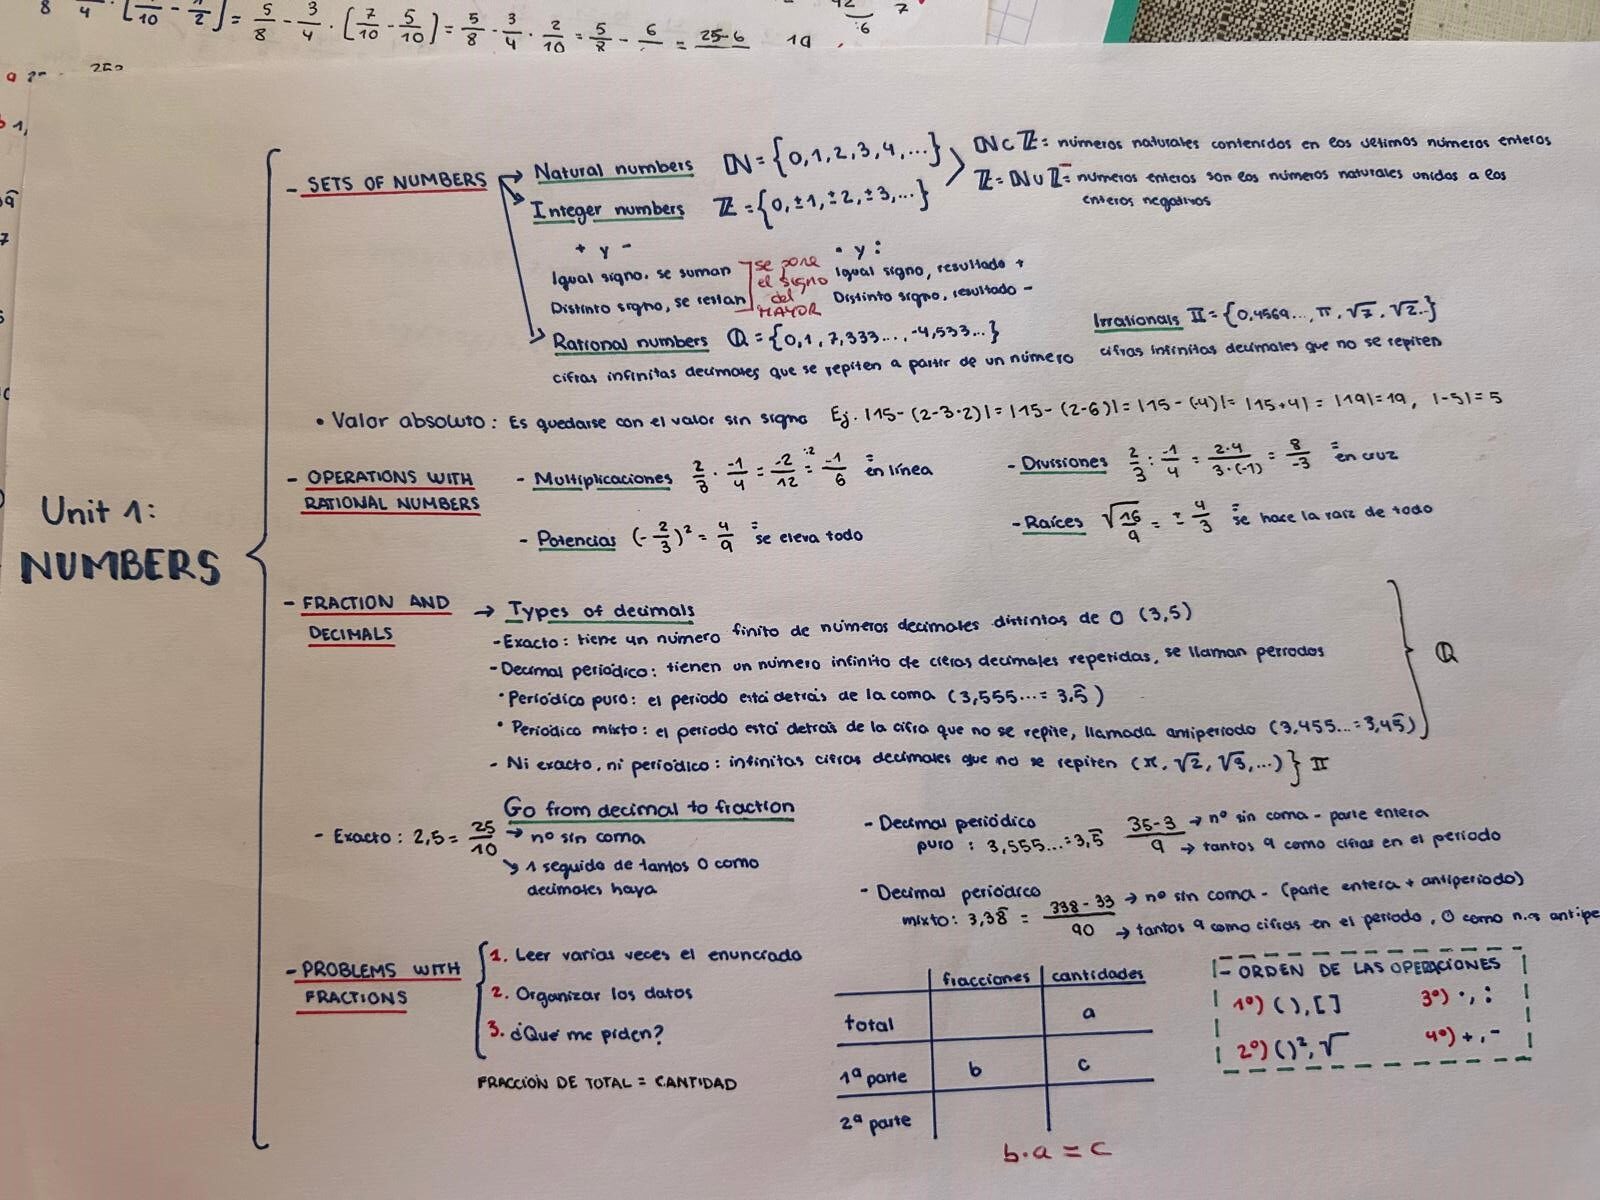 8 4 · [7/10 - 1/2] = 5/8 - 3/4 · [7/10 - 5/10] = 5/8 - 3/4 · 2/10 = 5/8 - 6/ = 25-6 19
:6 7
Unit 1:
NUMBERS
- SETS OF NUMBERS → Natural numbers ℕ = {0, 1, 2, 3, 4, ...} ℕ⊂ℤ = números naturales contenidos en los últimos números enteros
Integer numbers ℤ = {0, ±1, ±2, ±3, ...} ℤ = ℕ∪ℤ⁻ = números enteros son los números naturales unidos a los
enteros negativos
+ y - · y :
Igual signo, se suman se pone Igual signo, resultado +
el signo
Distinto signo, se restan del Distinto signo, resultado -
MAYOR
Rational numbers ℚ = {0, 1, 7,333..., -4,533...} Irrationals 𝕀 = {0,4569..., π, √7, √2..}
cifras infinitas decimales que se repiten a partir de un número cifras infinitas decimales que no se repiten
• Valor absoluto: Es quedarse con el valor sin signo Ej. |15-(2-3·2)| = |15-(2-6)| = |15-(-4)| = |15+4| = |19| = 19, |-5| = 5
- OPERATIONS WITH
RATIONAL NUMBERS
- Multiplicaciones 2/3 · -1/4 = -2/12 :2 = -1/6 = en línea - Divisiones 2/3 : -1/4 = 2·4/3·(-1) = 8/-3 = en cruz
- Potencias (-2/3)² = 4/9 = se eleva todo - Raíces √16/9 = ± 4/3 = se hace la raíz de todo
- FRACTION AND
DECIMALS
→ Types of decimals
- Exacto: tiene un número finito de números decimales distintas de 0 (3,5)
- Decimal periódico: tienen un número infinito de cifras decimales repetidas, se llaman períodos
· Periódico puro: el período está detrás de la coma (3,555... = 3,5̄)
· Periódico mixto: el período está detrás de la cifra que no se repite, llamada antiperíodo (3,455... = 3,45̄)
ℚ
- Ni exacto, ni periódico: infinitas cifras decimales que no se repiten (π, √2, √3, ...) } 𝕀
Go from decimal to fraction
- Exacto: 2,5 = 25/10 → nº sin coma
↘ 1 seguido de tantos 0 como
decimales haya
- Decimal periódico
puro: 3,555... = 3,5̄ 35-3/9 → nº sin coma - parte entera
→ tantos 9 como cifras en el período
- Decimal periódico
mixto: 3,38̄ = 338-33/90 → nº sin coma - (parte entera + antiperíodo)
→ tantos 9 como cifras en el período, 0 como n.os antipe
- PROBLEMS WITH
FRACTIONS
1. Leer varias veces el enunciado
2. Organizar los datos
3. ¿Qué me piden?
FRACCIÓN DE TOTAL = CANTIDAD
fracciones cantidades
total a
1ª parte b c
2ª parte
b·a = c
- ORDEN DE LAS OPERACIONES
1º) ( ), [ ] 3º) ·, :
2º) ( )², √ 4º) +, -